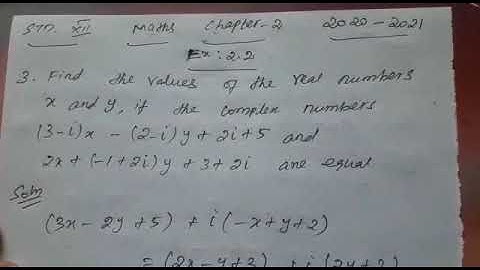 STD. XII Maths Chapter-2 2020-2021
Ex: 2.2
3. Find the values of the real numbers
x and y, if the complex numbers
(3-i)x - (2-i)y + 2i + 5 and
2x + (-1+2i)y + 3 + 2i are equal
Soln
(3x - 2y + 5) + i(-x + y + 2)
= (2x - y + 3) + i(2y + 2)